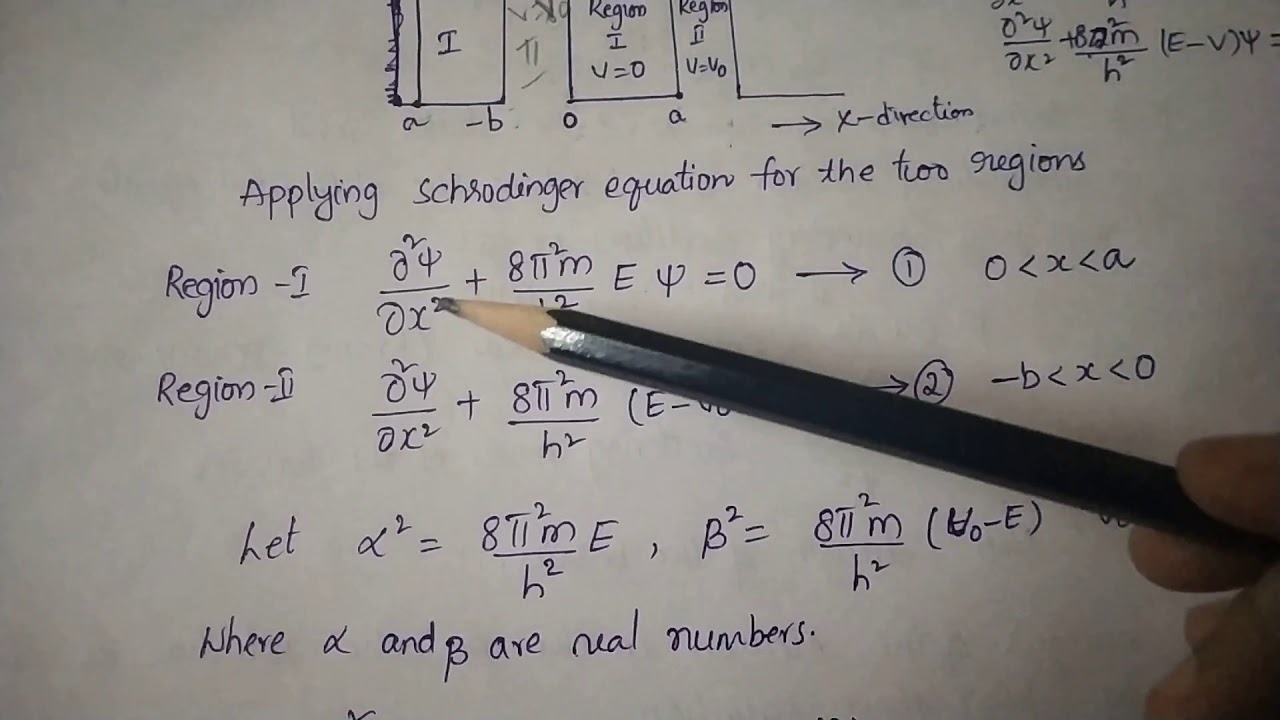 I
II
Region
I
V=0
Region
II
V=V₀
∂²ψ/∂x² + 8π²m/h² (E-V)ψ =
a -b 0 a → x-direction
Applying Schrodinger equation for the two regions
Region -I ∂²ψ/∂x² + 8π²m/h² E ψ = 0 → ① 0<x<a
Region-II ∂²ψ/∂x² + 8π²m/h² (E- → ② -b<x<0
Let α² = 8π²m/h² E , β² = 8π²m/h² (V₀-E)
Where α and β are real numbers.